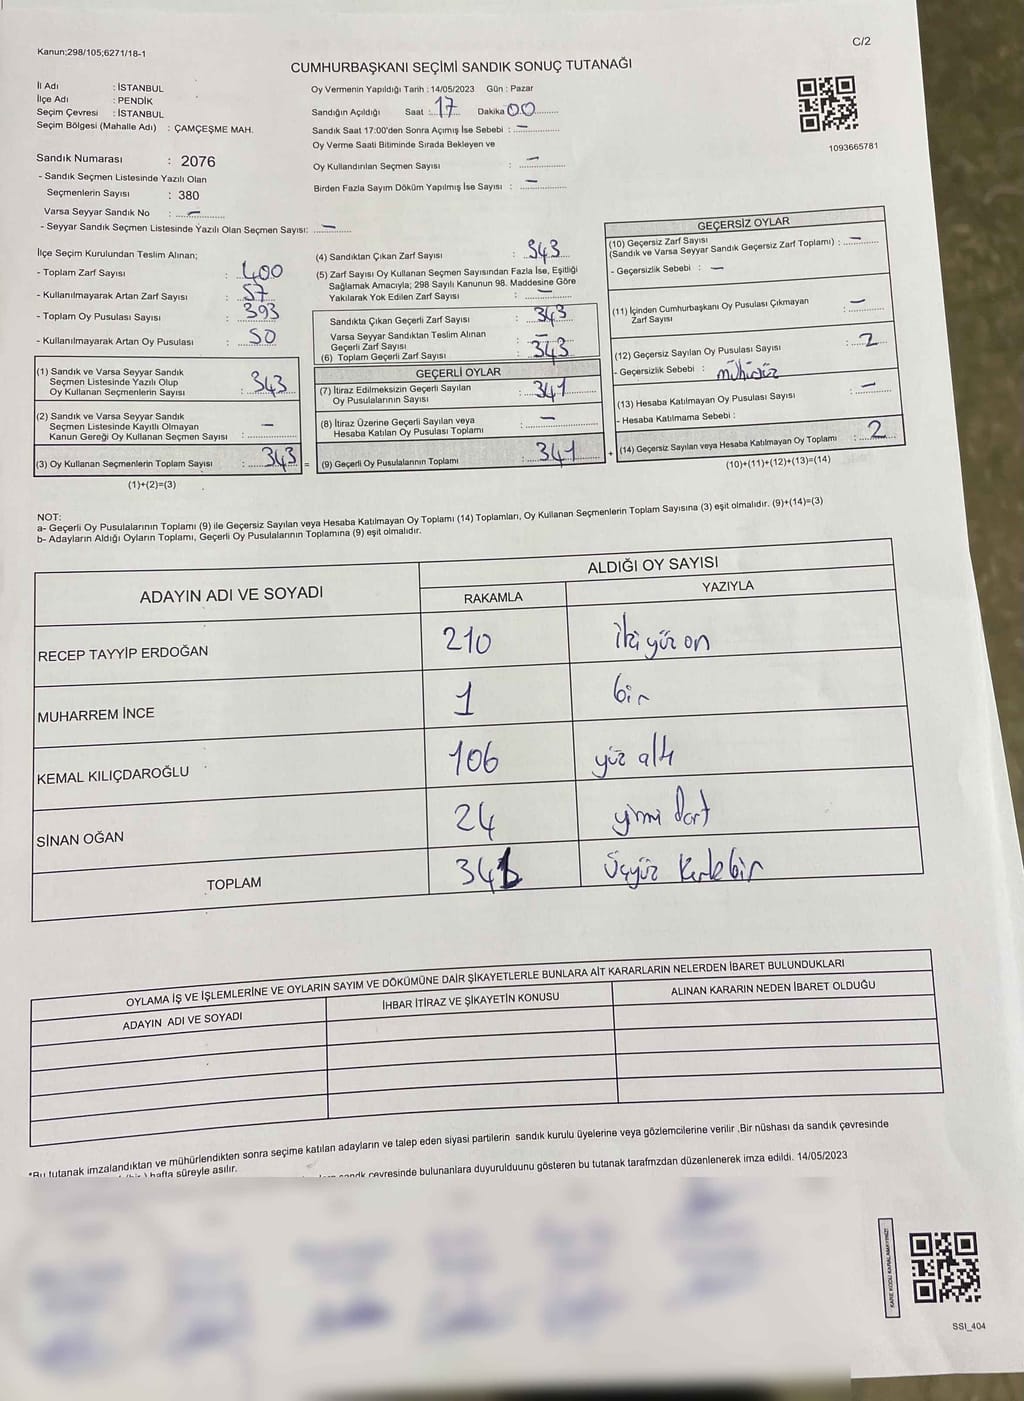 Kanun;298/105;6271/18-1
C/2
CUMHURBAŞKANI SEÇİMİ SANDIK SONUÇ TUTANAĞI
İl Adı : İSTANBUL
İlçe Adı : PENDİK
Seçim Çevresi : İSTANBUL
Seçim Bölgesi (Mahalle Adı) : ÇAMÇEŞME MAH.
Sandık Numarası : 2076
- Sandık Seçmen Listesinde Yazılı Olan
Seçmenlerin Sayısı : 380
Varsa Seyyar Sandık No : —
- Seyyar Sandık Seçmen Listesinde Yazılı Olan Seçmen Sayısı: —
Oy Vermenin Yapıldığı Tarih : 14/05/2023 Gün : Pazar
Sandığın Açıldığı Saat : 17 Dakika 00
Sandık Saat 17:00'den Sonra Açımış İse Sebebi : —
Oy Verme Saati Bitiminde Sırada Bekleyen ve
Oy Kullandırılan Seçmen Sayısı : —
Birden Fazla Sayım Döküm Yapılmış İse Sayısı : —
1093665781
İlçe Seçim Kurulundan Teslim Alınan;
- Toplam Zarf Sayısı : 400
- Kullanılmayarak Artan Zarf Sayısı : 57
- Toplam Oy Pusulası Sayısı : 393
- Kullanılmayarak Artan Oy Pusulası : 50
(1) Sandık ve Varsa Seyyar Sandık
Seçmen Listesinde Yazılı Olup
Oy Kullanan Seçmenlerin Sayısı : 343
(2) Sandık ve Varsa Seyyar Sandık
Seçmen Listesinde Kayıtlı Olmayan
Kanun Gereği Oy Kullanan Seçmen Sayısı : —
(3) Oy Kullanan Seçmenlerin Toplam Sayısı : 343 =
(1)+(2)=(3)
(4) Sandıktan Çıkan Zarf Sayısı : 343
(5) Zarf Sayısı Oy Kullanan Seçmen Sayısından Fazla İse, Eşitliği
Sağlamak Amacıyla; 298 Sayılı Kanunun 98. Maddesine Göre
Yakılarak Yok Edilen Zarf Sayısı : —
Sandıkta Çıkan Geçerli Zarf Sayısı : 343
Varsa Seyyar Sandıktan Teslim Alınan
Geçerli Zarf Sayısı : —
(6) Toplam Geçerli Zarf Sayısı : 343
GEÇERLİ OYLAR
(7) İtiraz Edilmeksizin Geçerli Sayılan
Oy Pusulalarının Sayısı : 341
(8) İtiraz Üzerine Geçerli Sayılan veya
Hesaba Katılan Oy Pusulası Toplamı : —
(9) Geçerli Oy Pusulalarının Toplamı : 341 +
GEÇERSİZ OYLAR
(10) Geçersiz Zarf Sayısı
(Sandık ve Varsa Seyyar Sandık Geçersiz Zarf Toplamı) : —
- Geçersizlik Sebebi : —
(11) İçinden Cumhurbaşkanı Oy Pusulası Çıkmayan
Zarf Sayısı : —
(12) Geçersiz Sayılan Oy Pusulası Sayısı : 2
- Geçersizlik Sebebi : mühürsüz
(13) Hesaba Katılmayan Oy Pusulası Sayısı : —
- Hesaba Katılmama Sebebi :
(14) Geçersiz Sayılan veya Hesaba Katılmayan Oy Toplamı : 2
(10)+(11)+(12)+(13)=(14)
NOT:
a- Geçerli Oy Pusulalarının Toplamı (9) ile Geçersiz Sayılan veya Hesaba Katılmayan Oy Toplamı (14) Toplamları, Oy Kullanan Seçmenlerin Toplam Sayısına (3) eşit olmalıdır. (9)+(14)=(3)
b- Adayların Aldığı Oyların Toplamı, Geçerli Oy Pusulalarının Toplamına (9) eşit olmalıdır.
ADAYIN ADI VE SOYADI
ALDIĞI OY SAYISI
RAKAMLA YAZIYLA
RECEP TAYYİP ERDOĞAN 210 iki yüz on
MUHARREM İNCE 1 bir
KEMAL KILIÇDAROĞLU 106 yüz altı
SİNAN OĞAN 24 yirmi dört
TOPLAM 341 Üçyüz kırkbir
OYLAMA İŞ VE İŞLEMLERİNE VE OYLARIN SAYIM VE DÖKÜMÜNE DAİR ŞİKAYETLERLE BUNLARA AİT KARARLARIN NELERDEN İBARET BULUNDUKLARI
ADAYIN ADI VE SOYADI İHBAR İTİRAZ VE ŞİKAYETİN KONUSU ALINAN KARARIN NEDEN İBARET OLDUĞU
*Bu tutanak imzalandıktan ve mühürlendikten sonra seçime katılan adayların ve talep eden siyasi partilerin sandık kurulu üyelerine veya gözlemcilerine verilir ,Bir nüshası da sandık çevresinde
hafta süreyle asılır.
sandık çevresinde bulunanlara duyurulduunu gösteren bu tutanak tarafmzdan düzenlenerek imza edildi. 14/05/2023
KARE KODU KARALAMAYINIZ!
SSI_404